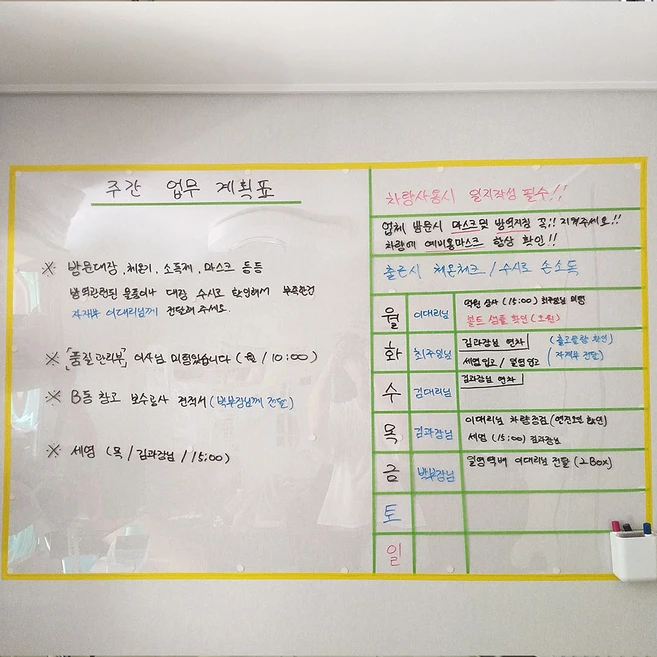 주간 업무 계획표
※ 방문대장, 체온기, 소독제, 마스크 등등
방역관련된 물품이나 대장 수시로 확인해서 부족한건
자재부 이대리님께 전달해주세요.
※ 「품질관리부」 이사님 미팅있습니다 (월 / 10:00)
※ B동 창고 보수공사 견적서 (박부장님께 전달)
※ 세영 (목 / 김과장님 / 15:00)
차량사용시 일지작성 필수!!
업체 방문시 마스크및 방역지침 꼭!! 지켜주세요!!
차량에 예비용마스크 항상 확인!!
출근시 체온체크 / 수시로 손소독
월 이대리님 (15:00) 최주임님 미팅
볼트 샘플 확인
화 최주임님 김과장님 연차 (출고물량 확인)
세영입고 / 열영입고 (자재부 전달)
수 김대리님 김과장님 연차
목 김과장님 이대리님 차량점검 (엔진오일 확인)
세영 (15:00) 김과장님
금 박부장님 열영택배 이대리님 전달 (2Box)
토
일